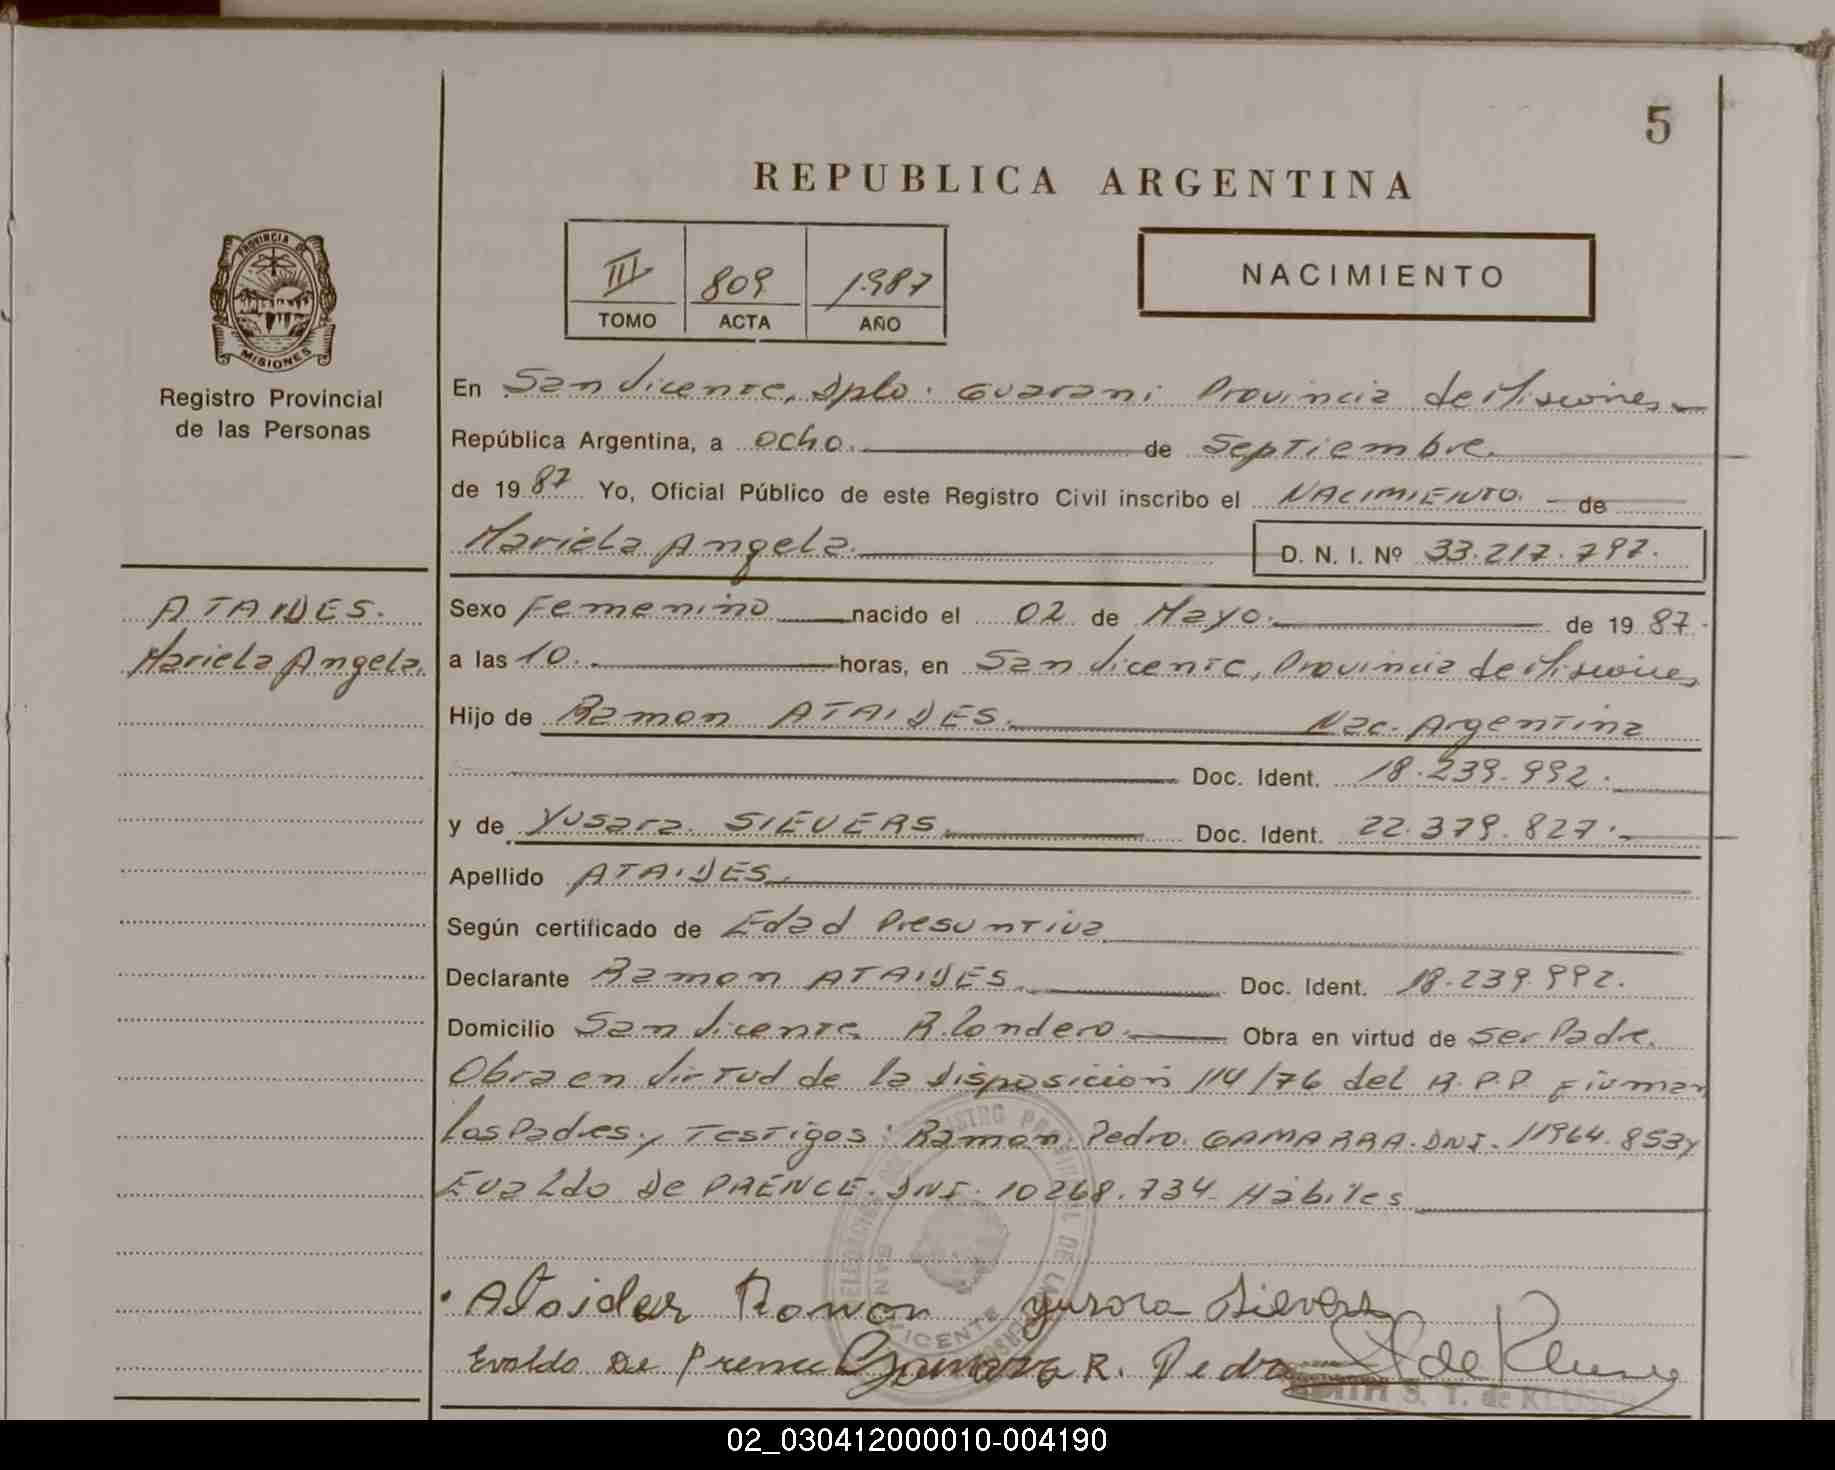 5
REPUBLICA ARGENTINA
PROVINCIA DE
MISIONES
Registro Provincial
de las Personas
III 809 1987
TOMO ACTA AÑO
NACIMIENTO
En San Vicente, Dpto. Guarani Provincia de Misiones
República Argentina, a ocho. de Septiembre.
de 1987 Yo, Oficial Público de este Registro Civil inscribo el NACIMIENTO. de
Mariela Angela. D. N. I. Nº 33.217.797.
ATAIDES.
Mariela Angela.
Sexo Femenino nacido el 02 de Mayo. de 1987.
a las 10. horas, en San Vicente, Provincia de Misiones
Hijo de Ramon ATAIDES. Nac. Argentina
Doc. Ident. 18.239.992.
y de Yusara SIEVERS. Doc. Ident. 22.379.827.
Apellido ATAIDES.
Según certificado de Edad Presuntiva
Declarante Ramon ATAIDES. Doc. Ident. 18.239.992.
Domicilio San Vicente R. Londero. Obra en virtud de ser Padre.
Obra en virtud de la disposición 114/76 del R.P.P. Firman
los Padres y Testigos: Ramon Pedro GAMARRA. DNI. 11964.853 y
Evaldo De PRENCE. DNI. 10268.734 Hábiles
Ataides Ramon Yusara Sievers
Evaldo De Prence Gamarra R. Pedro de Kluse
S. T. de KLUSE
02_030412000010-004190